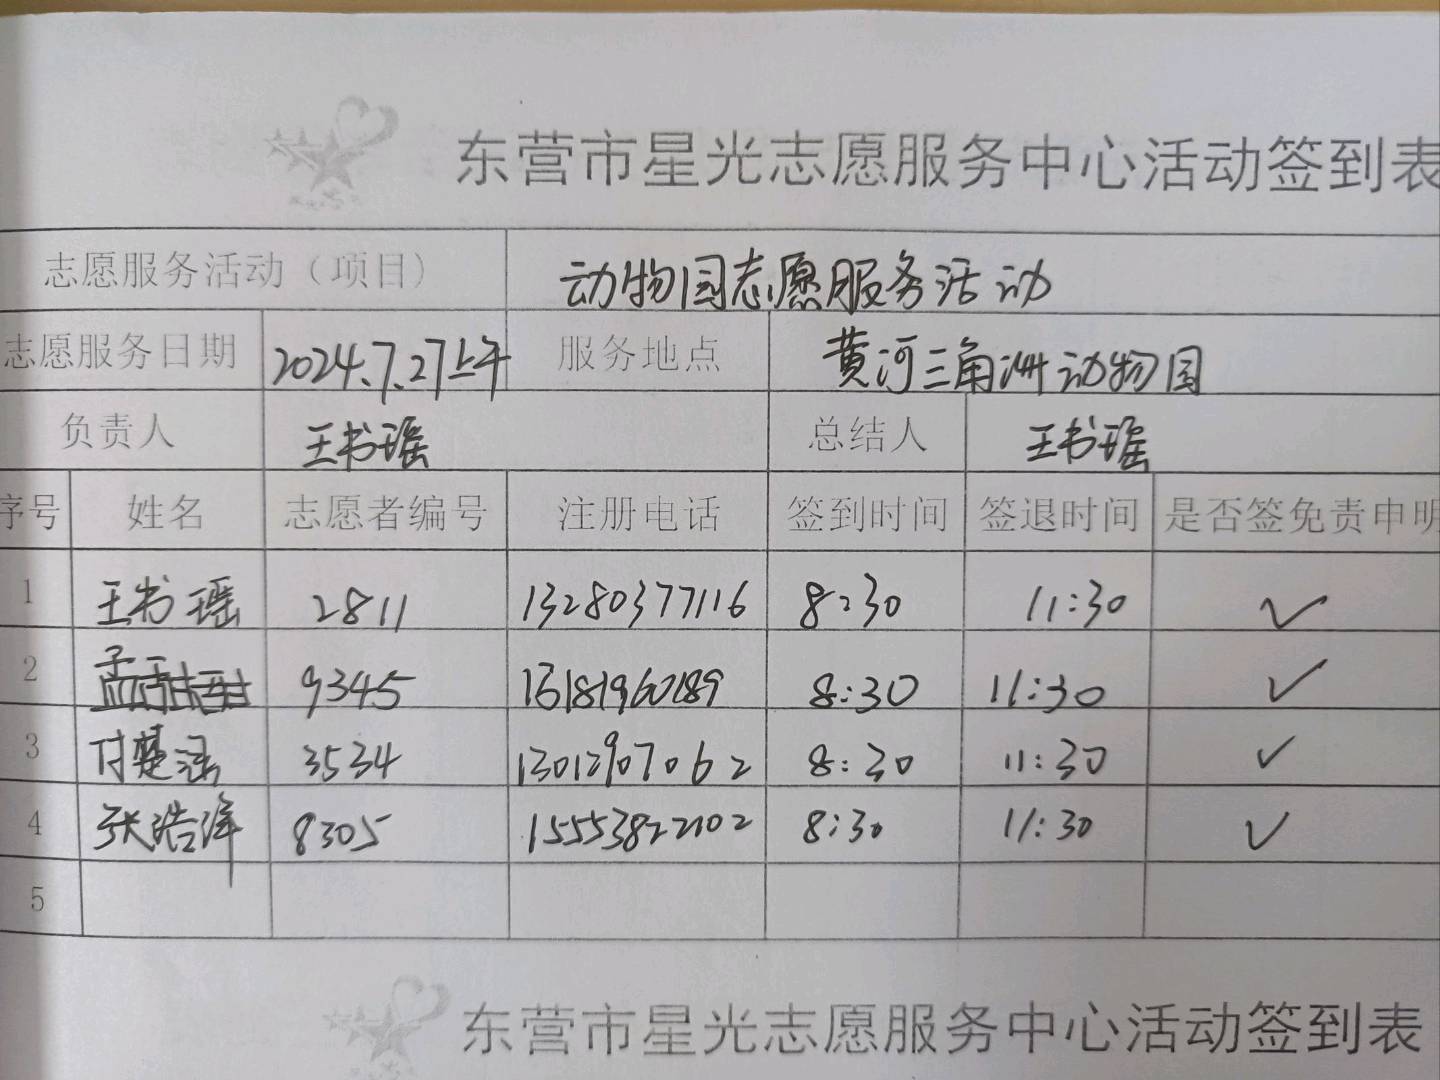 东营市星光志愿服务中心活动签到表
志愿服务活动（项目） 动物园志愿服务活动
志愿服务日期 2024.7.27上午 服务地点 黄河三角洲动物园
负责人 王书瑶 总结人 王书瑶
序号 姓名 志愿者编号 注册电话 签到时间 签退时间 是否签免责申明
1 王书瑶 2811 13280377116 8:30 11:30 ✓
2 孟 9345 8:30 11:30 ✓
3 付楚涵 3534 13012907062 8:30 11:30 ✓
4 张浩洋 8305 15553822102 8:30 11:30 ✓
5
东营市星光志愿服务中心活动签到表